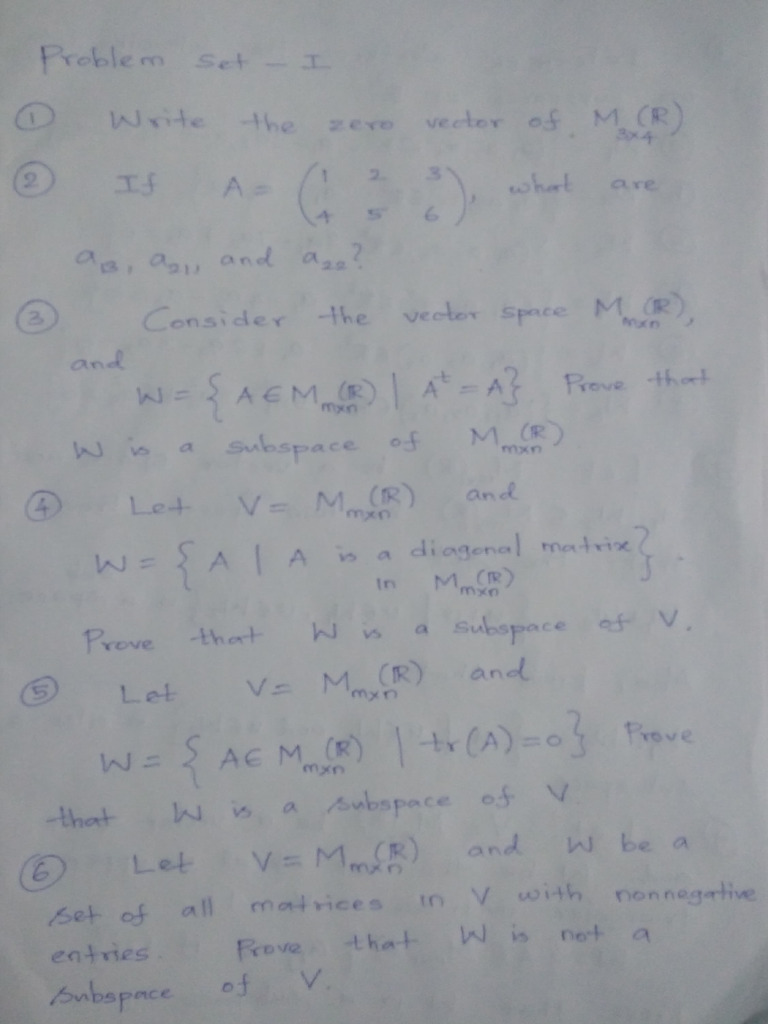 Problem set - I
① Write the zero vector of M₃ₓ₄(ℝ)
② If A = (1 2 3
4 5 6), what are
a₁₃, a₂₁, and a₂₂?
③ Consider the vector space Mₘₓₙ(ℝ),
and
W = { A ∈ Mₘₓₙ(ℝ) | Aᵗ = A} Prove that
W is a subspace of Mₘₓₙ(ℝ)
④ Let V = Mₘₓₙ(ℝ) and
W = { A | A is a diagonal matrix
in Mₘₓₙ(ℝ) }.
Prove that W is a subspace of V.
⑤ Let V = Mₘₓₙ(ℝ) and
W = { A ∈ Mₘₓₙ(ℝ) | tr(A) = 0} Prove
that W is a subspace of V
⑥ Let V = Mₘₓₙ(ℝ) and W be a
set of all matrices in V with nonnegative
entries. Prove that W is not a
subspace of V.